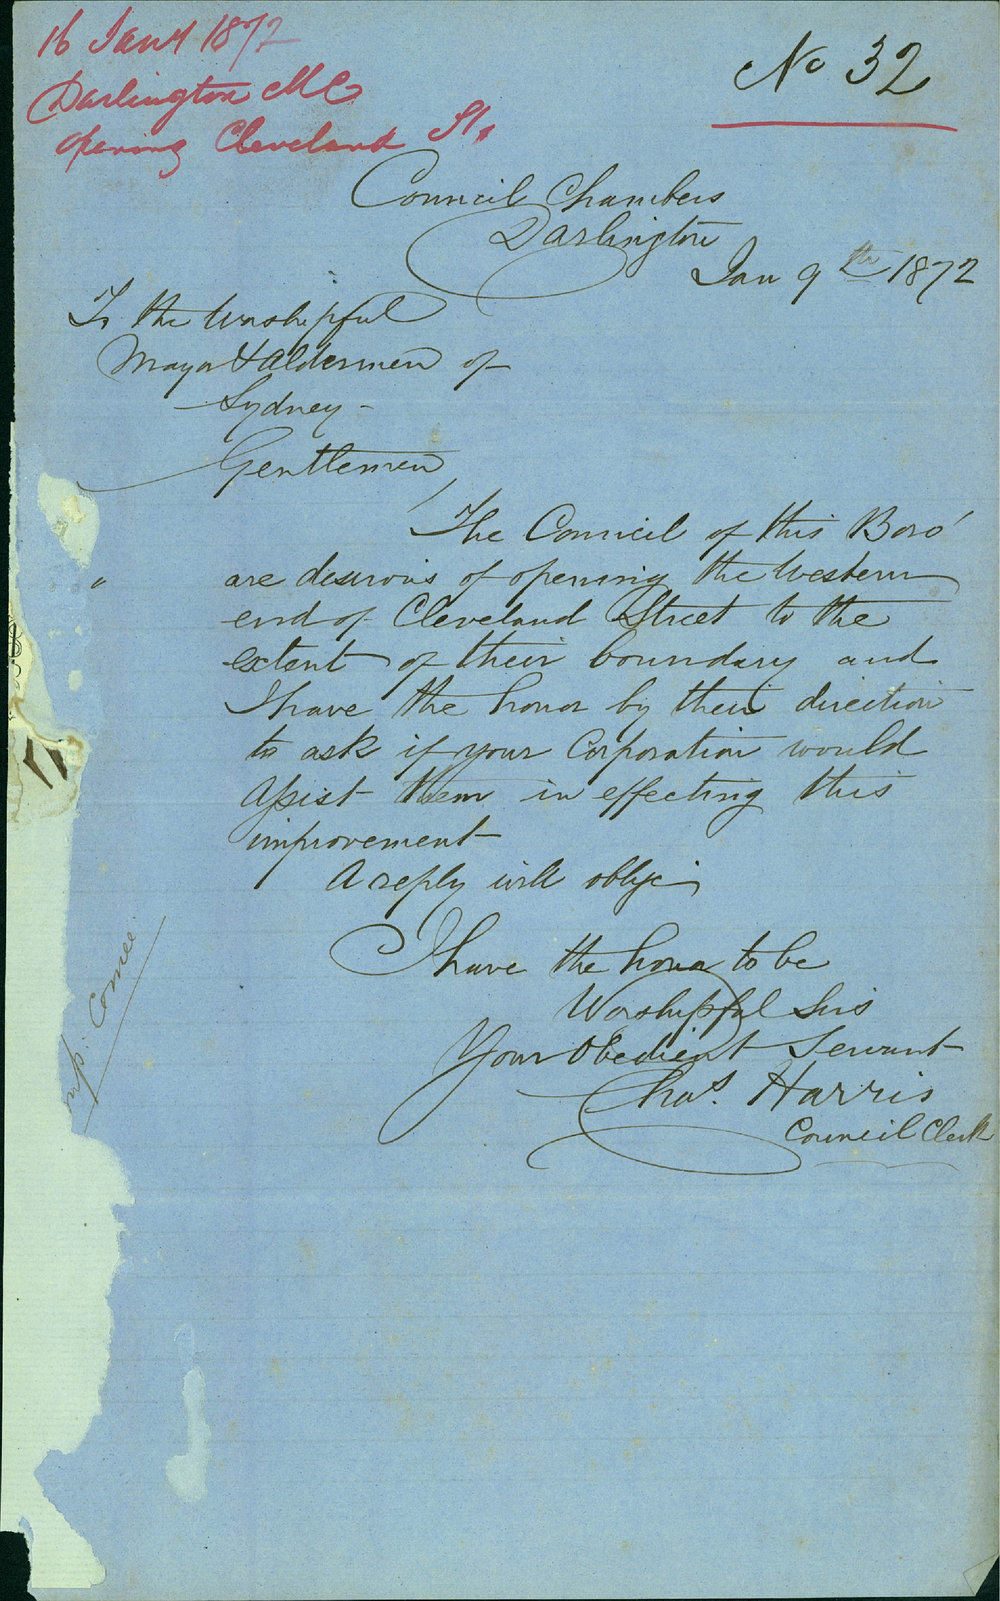 16 Jany 1872
Darlington MC
opening Cleveland St.
No 32
Council Chambers
Darlington
Jan 9th 1872
To the Worshipful
Mayor & Aldermen of
Sydney -
Gentlemen,
The Council of this Boro'
are desirous of opening the Western
end of Cleveland Street to the
extent of their boundary and
I have the honor by their direction
to ask if your Corporation would
assist them in effecting this
improvement
A reply will oblige
I have the honor to be
Worshipful Sirs
Your Obedient Servant
Chas. Harris
Council Clerk